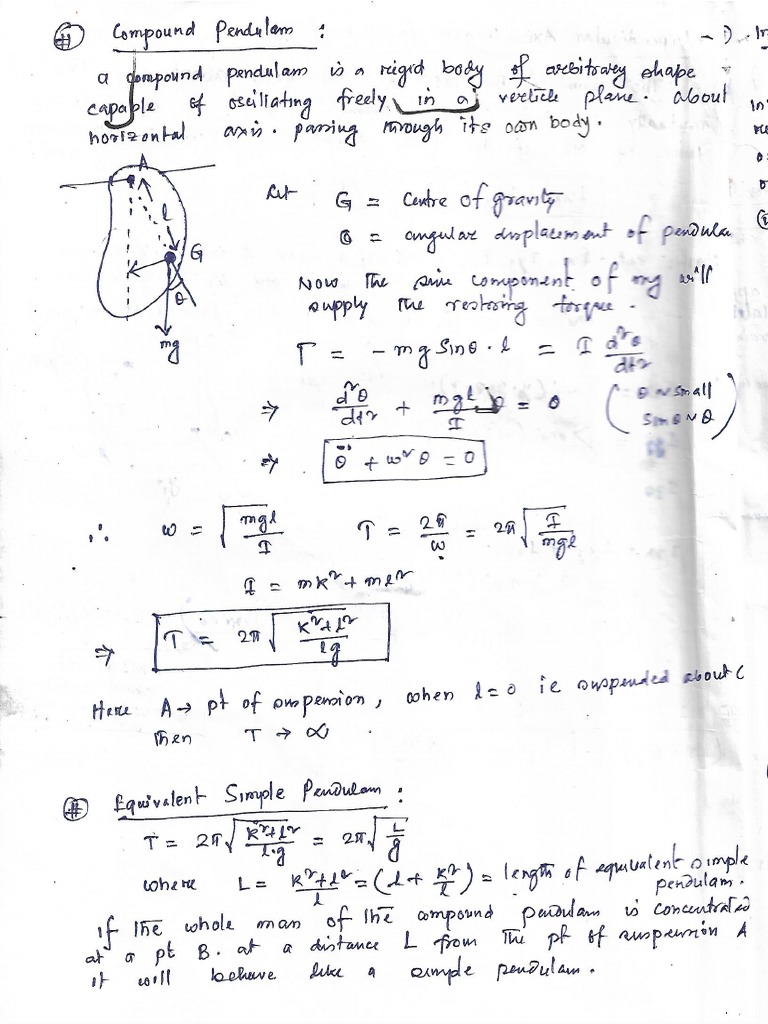 # Compound Pendulam :
a compound pendulam is a rigid body of arbitrary shape
capable of oscillating freely in a verticle plane. about
horizontal axis. passing through its own body.
A
l
G
θ
mg
Let G = Centre of gravity
θ = angular displacement of pendula
Now the sine component of mg will
supply the restoring torque.
T = - mg Sinθ · l = I d²θ/dt²
⇒ d²θ/dt² + mgl/I θ = 0 (θ ~ small
Sinθ ~ θ)
⇒ θ̈ + ω²θ = 0
∴ ω = √(mgl/I) T = 2π/ω = 2π√(I/mgl)
I = mk² + ml²
⇒ T = 2π√((k²+l²)/lg)
Here A → pt of suspension, when l = 0 ie suspended about C
Then T → ∞ .
# Equivalent Simple Pendulam :
T = 2π√((k²+l²)/l·g) = 2π√(L/g)
where L = (k²+l²)/l = (l + k²/l) = length of equivalent simple
pendulam.
If the whole man of the compound pendulam is concentrated
at a pt B. at a distance L from the pt of suspension A
it will behave like a simple pendulam.